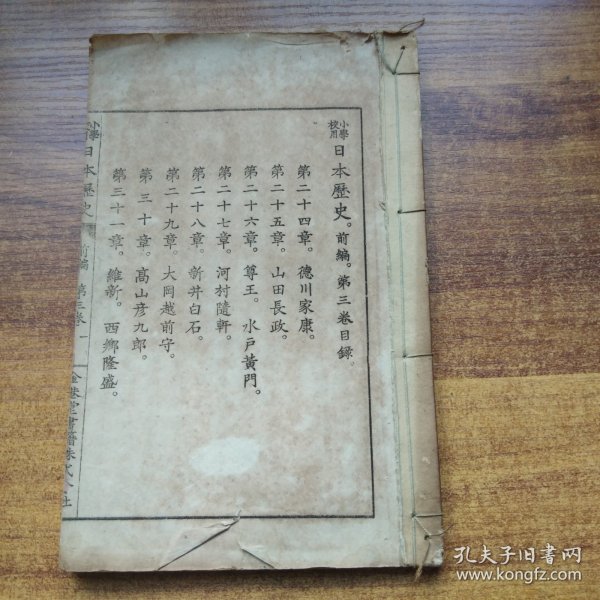 小學校用日本歷史。前編。第三卷目錄。
第二十四章。德川家康。
第二十五章。山田長政。
第二十六章。尊王。水戸黃門。
第二十七章。河村隨軒。
第二十八章。新井白石。
第二十九章。大岡越前守。
第三十章。高山彦九郎。
第三十一章。維新。西鄉隆盛。
小學 日本歷史 前編 第三卷 一
金港堂書籍株式会社
孔夫子旧书网
www.kongfz.com